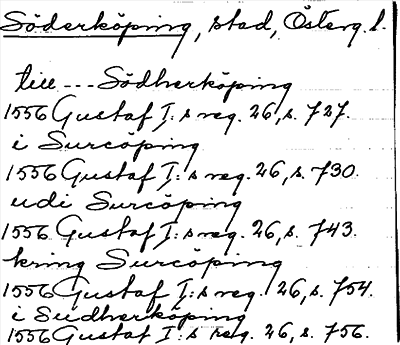 Söderköping, stad, Österg. l.
till --- Södherköping
1556 Gustaf I:s reg. 26, s. 727.
i Surcöping
1556 Gustaf I:s reg. 26, s. 730.
udi Surcöping
1556 Gustaf I:s reg. 26, s. 743.
kring Surcöping
1556 Gustaf I:s reg. 26, s. 754.
i Südherköping
1556 Gustaf I:s reg. 26, s. 756.